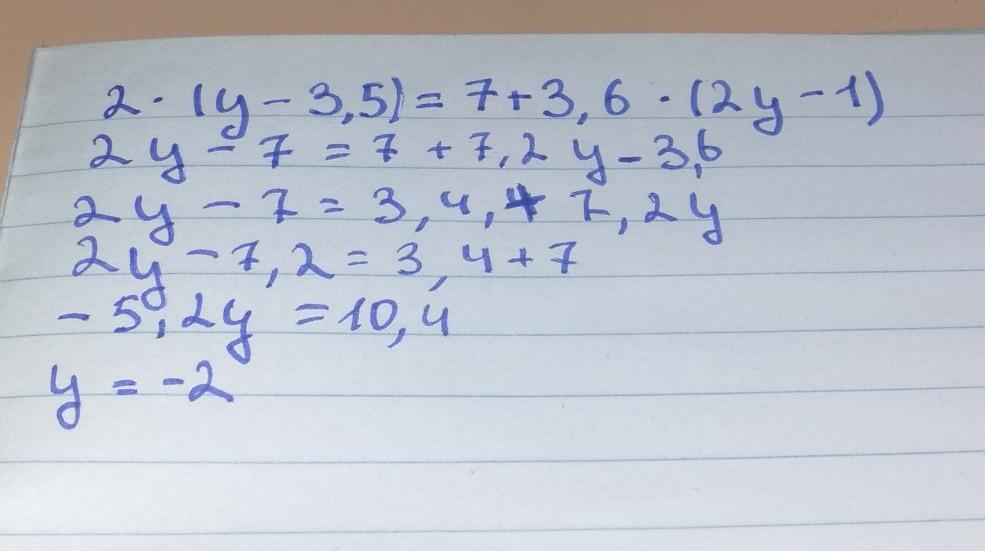 2 · (y - 3,5) = 7 + 3,6 · (2y - 1)
2y - 7 = 7 + 7,2y - 3,6
2y - 7 = 3,4, + 7,2y
2y - 7,2 = 3,4 + 7
- 5,2y = 10,4
y = -2